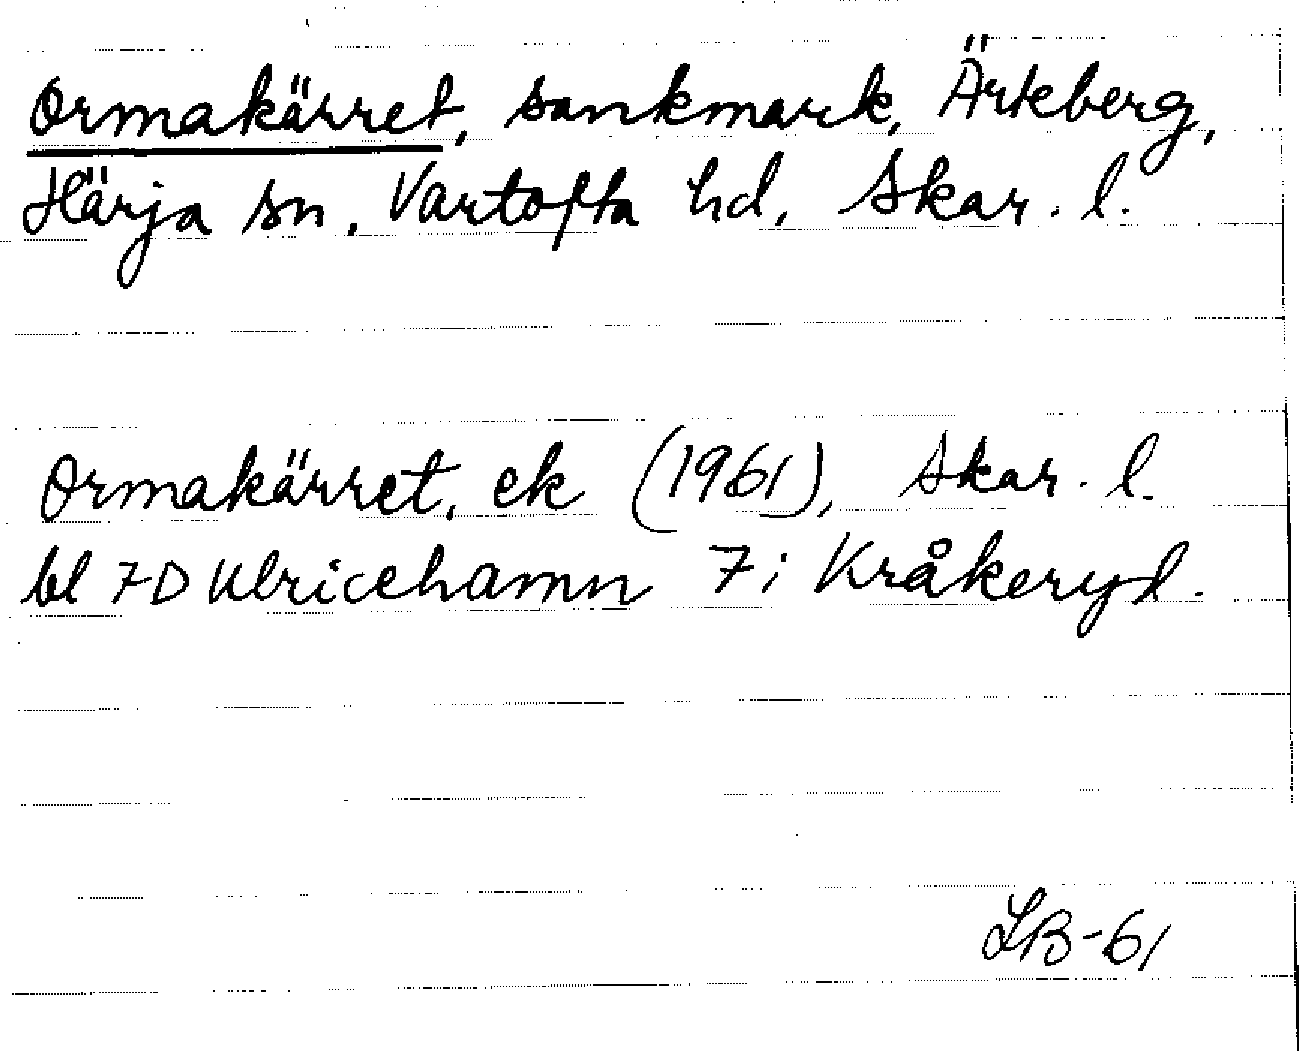 Ormakärret, sankmark, Ärkeberg,
Härja sn. Vartofta hd, Skar. l.
Ormakärret, ek (1961), Skar. l.
bl 7D Ulricehamn 7i Kråkeryd.
LB-61